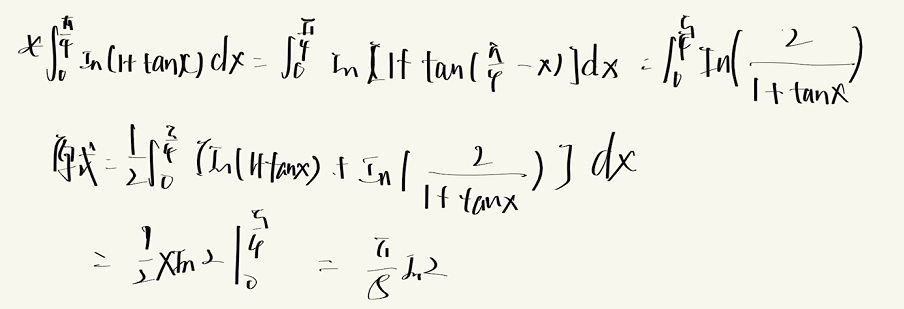 * ∫₀^{π/4} ln(1+tanx)dx = ∫₀^{π/4} ln[1+tan(π/4-x)]dx = ∫₀^{π/4} ln(2/(1+tanx))
原式=1/2∫₀^{π/4} [ln(1+tanx)+ln(2/(1+tanx))]dx
= 1/2 xln2 |₀^{π/4} = π/8 ln2